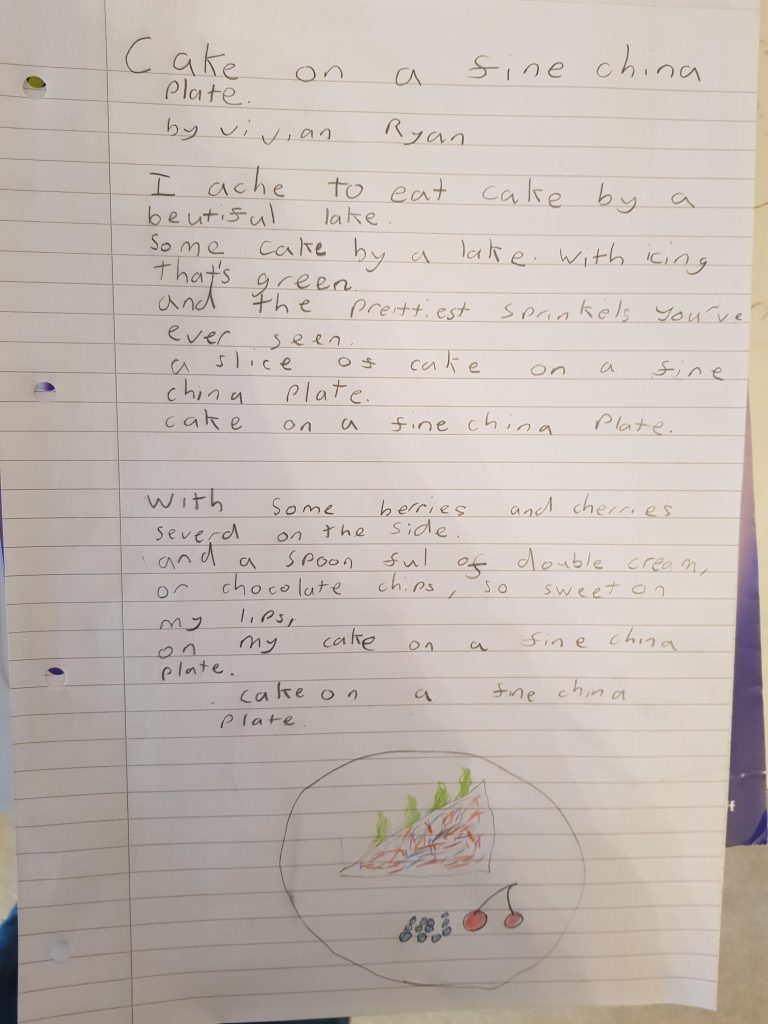 Cake on a fine china
Plate.
by vivian Ryan
I ache to eat cake by a
beutiful lake.
Some cake by a lake. with icing
that's green.
and the prettiest sprinkels you've
ever seen.
a slice of cake on a fine
china Plate.
cake on a fine china Plate.
With some berries and cherries
severd on the side.
and a spoon ful of double cream,
or chocolate chips, so sweet on
my lips,
on my cake on a fine china
plate.
cake on a fine china
Plate.
f